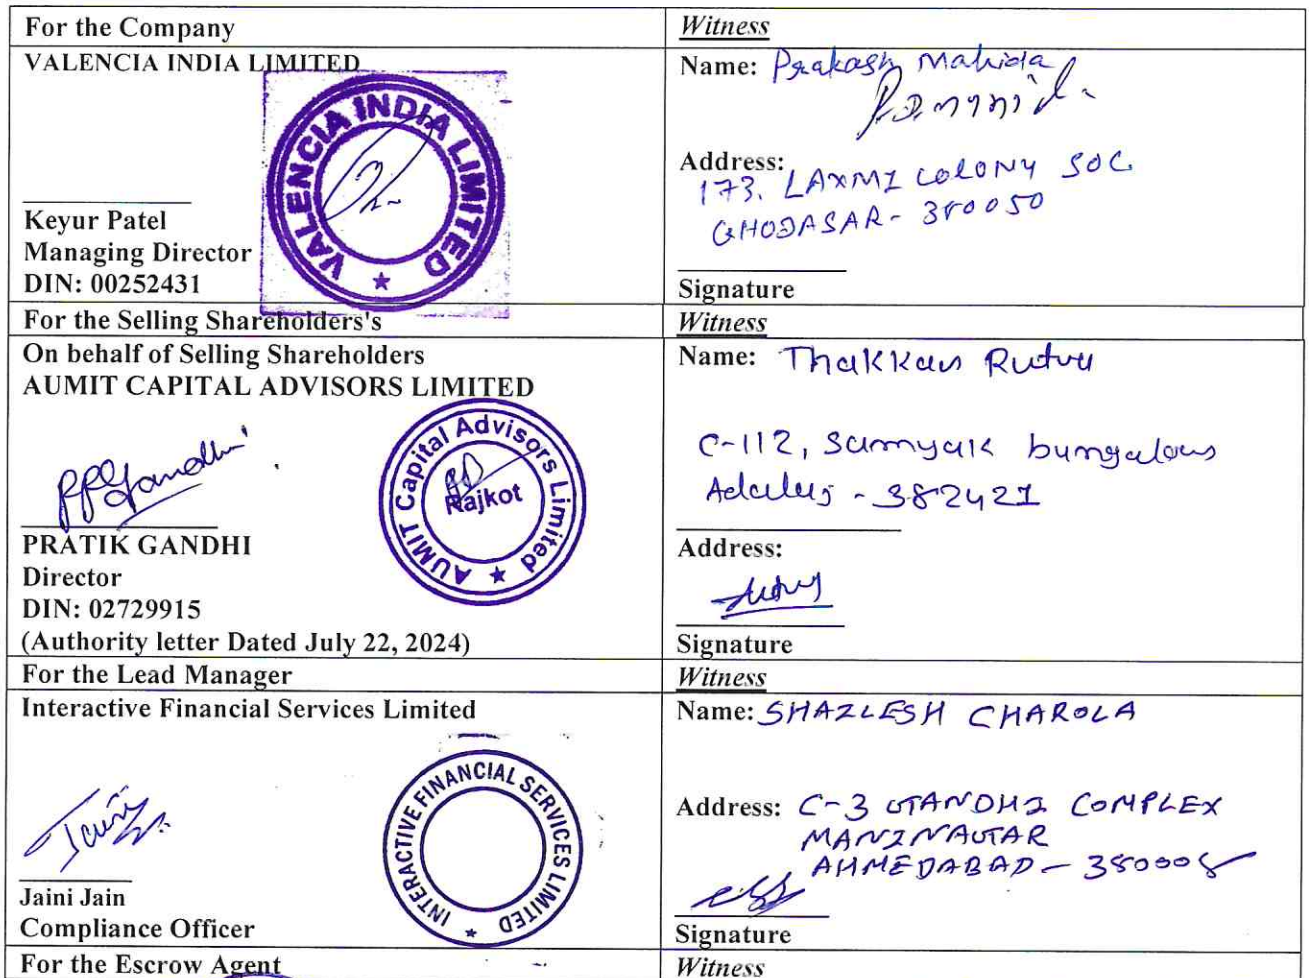 For the Company
Witness
VALENCIA INDIA LIMITED
VALENCIA INDIA LIMITED
Keyur Patel
Managing Director
DIN: 00252431
Name: Prakash Mahida
Address:
173. LAXMI COLONY SOC.
GHODASAR - 380050
Signature
For the Selling Shareholders's
Witness
On behalf of Selling Shareholders
AUMIT CAPITAL ADVISORS LIMITED
PPGandhi
AUMIT Capital Advisors Limited
Rajkot
PRATIK GANDHI
Director
DIN: 02729915
(Authority letter Dated July 22, 2024)
Name: Thakkar Rutvu
C-112, Samyak bungalows
- 382421
Address:
Signature
For the Lead Manager
Witness
Interactive Financial Services Limited
INTERACTIVE FINANCIAL SERVICES LIMITED
Jaini Jain
Compliance Officer
Name: SHAILESH CHAROLA
Address: C-3 GANDHI COMPLEX
MANINAGAR
AHMEDABAD - 380008
Signature
For the Escrow Agent
Witness